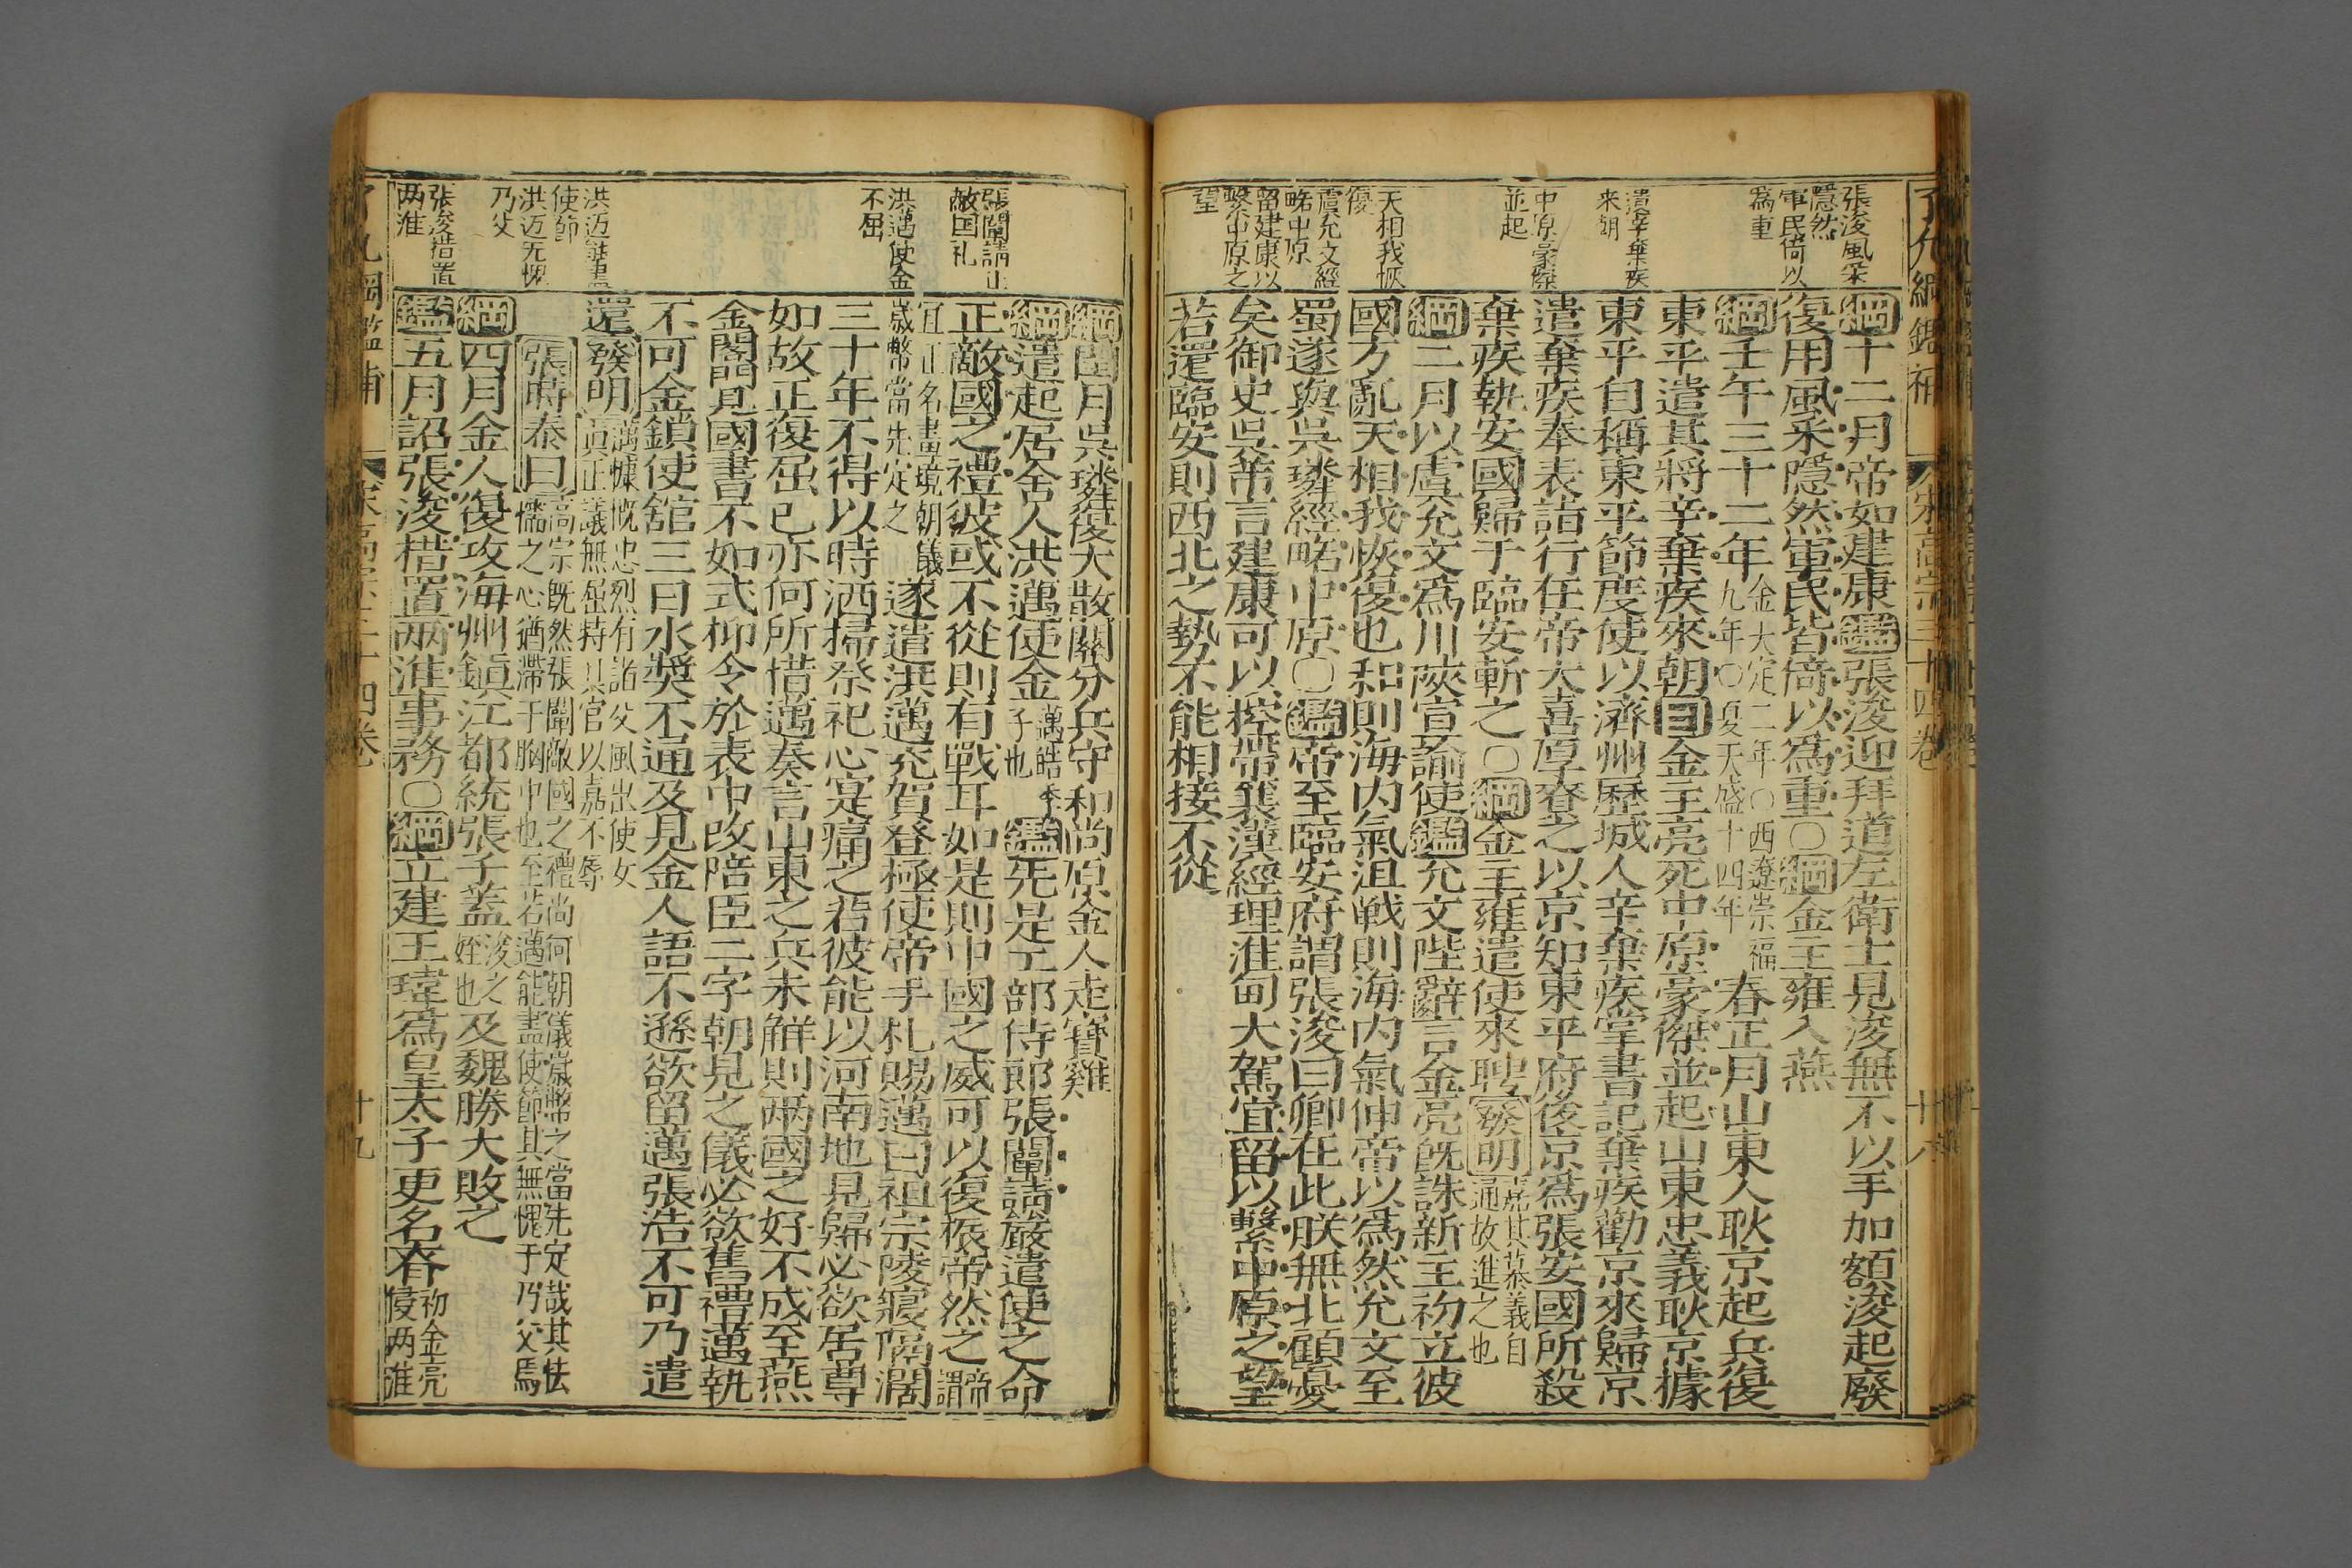 張浚風采
隱然
軍民倚以
為重
遣辛棄疾
来朝
中原豪傑
並起
天相我恢
復
虞允文經
畧中原
留建康以
繫中原之
望
綱十二月帝如建康鑑張浚迎拜道左衛士見浚無不以手加額浚起廢
復用風采隱然軍民皆倚以為重○綱金主雍入燕
綱壬午三十二年金大定二年○西遼崇福
九年○夏天盛十四年春正月山東人耿京起兵復
東平遣其將辛棄疾來朝目金主亮死中原豪傑並起山東忠義耿京據
東平自稱東平節度使以濟州歷城人辛棄疾掌書記棄疾勸京來歸京
遣棄疾奉表詣行在帝大喜厚賚之以京知東平府後京為張安國所殺
棄疾執安國歸于臨安斬之○綱金主雍遣使來聘發明嘉其慕義自
通故進之也
綱二月以虞允文為川陝宣諭使鑑允文陛辭言金亮既誅新主初立彼
國方亂天相我恢復也和則海内氣沮戰則海内氣伸帝以為然允文至
蜀遂與吳璘經畧中原○鑑帝至臨安府謂張浚曰卿在此朕無北顧憂
矣御史吳芾言建康可以控帶襄漢經理淮甸大駕宜留以繫中原之望
若還臨安則西北之勢不能相接不從
張闡請正
敵国礼
洪邁使金
不屈
洪迈能盡
使節
洪迈无愧
乃父
張浚措置
两淮
綱閏月吳璘復大散關分兵守和尚原金人走寶雞
綱遣起居舍人洪邁使金邁皓季
子也鑑先是工部侍郎張闡請嚴遣使之命
正敵國之禮彼或不從則有戰耳如是則中國之威可以復振帝然之謂帝
宜正名畫境朝儀
歲幣當先定之遂遣洪邁充賀登極使帝手札賜邁曰祖宗陵寢隔濶
三十年不得以時洒掃祭祀心寔痛之若彼能以河南地見歸必欲居尊
如故正復屈己亦何所惜邁奏言山東之兵未解則两國之好不成至燕
金閤門見國書不如式抑令於表中改陪臣二字朝見之儀必欲舊禮邁執
不可金鎖使舘三日水漿不通及見金人語不遜欲留邁張浩不可乃遣
還發明邁慷慨忠烈有諸父風出使女
真正議無屈特具官以嘉不辱
張時泰曰高宗既然張闡敵國之禮尚何朝儀歲幣之當先定哉其怯
懦之心猶滯于胸中也至若邁能盡使節其無愧于乃父焉
綱四月金人復攻海州鎮江都統張子蓋浚之
姪也及魏勝大敗之
鑑五月詔張浚措置两淮事務○綱立建王瑋為皇太子更名眘初金亮
侵两淮